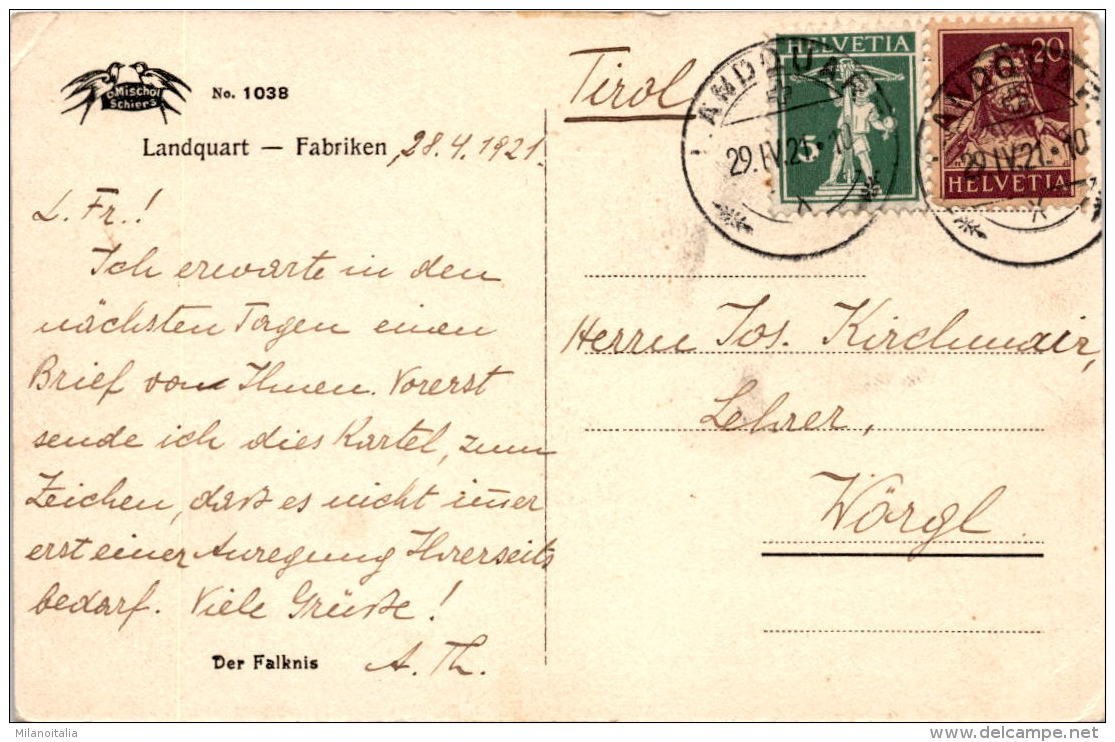 Mischol
Schiers
No. 1038
Landquart — Fabriken, 28.4.1921.
L. Fr.!
Ich erwarte in den
nächsten Tagen einen
Brief von Ihnen. Vorerst
sende ich dies Kartel, zum
Zeichen, daß es nicht im̄er
erst einer Anregung Ihrerseits
bedarf. Viele Grüße!
A. Th.
Der Falknis
Tirol
HELVETIA
5
20
HELVETIA
LANDQUART
29.IV.21.-10
LANDQUART
29.IV.21.-10
Herrn Jos. Kirchmair,
Lehrer,
Wörgl.
Milanoitalia
delcampe.net